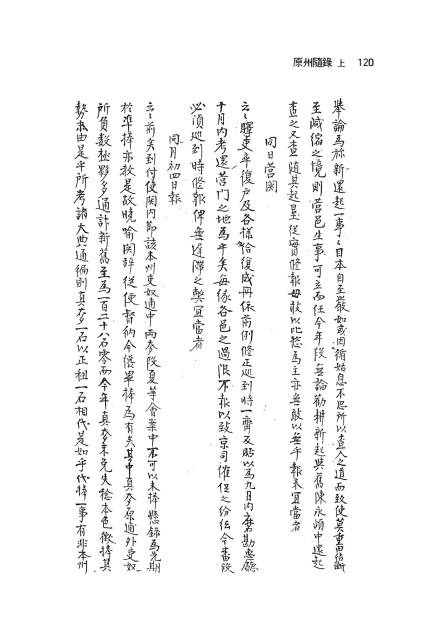 原州隨錄 上 120
舉論爲旀新還起一事〻目本自至嚴如或因循姑息不思所以查入之道而致使莫重田結漸
至減縮之境則營邑生事可立而待今年段無論勸耕新起與舊陳永頉中還起
查之又查隨其起呈從實修報毋敢以此愁爲主亦無敢以無乎報來宜當者
同日營関
云〻驛吏卒復戶及各樣給復成冊依前例修正趁到時一齊反貼以爲九月內磨勘惠廳
十月內考還營門之地爲乎矣每緣各邑之過限不報以致京司催促之紛紜今番段
必須趁到時修報俾無遲滯之弊宜當者
同月初四日報
云〻前矣到付使関內節該本州吏奴逋中兩麥段夏等會案中不可以未捧懸錄爲先期
於準捧亦教是故曉喻関辭從便暫納今儘畢捧爲有矣其中真麥原逋外吏奴
所負數極夥多通計新舊至爲一百二十八石零而今年真麥未免失稔本色徵捧其
勢末由是乎所考諸大典通編則真麥一石以正租一石相代是如乎代捧一事有非本州